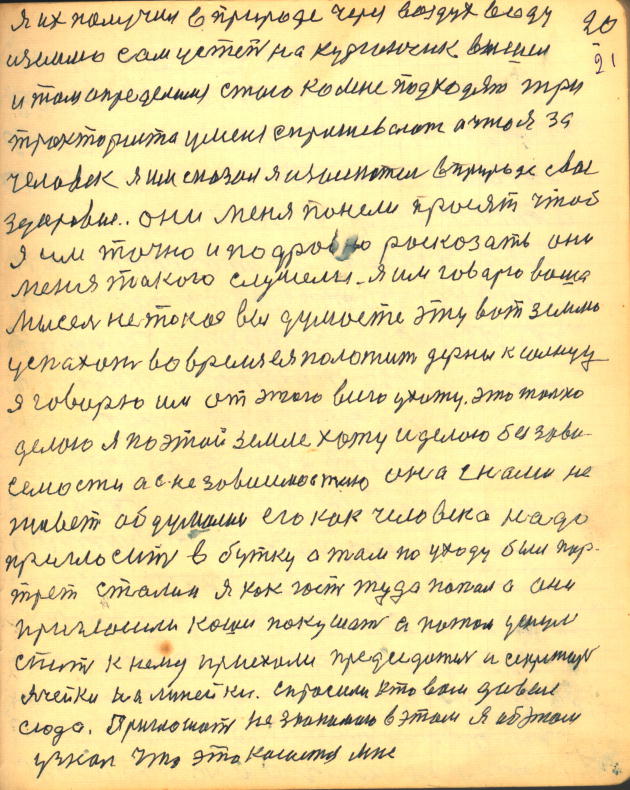 я их получил в природе через воздух воду 20
и землю сам успеть на вышел 21
и там определился стаго ко мне подходят три
тракториста у меня спрашевалат а что я за
человек я им сказал я в природе свае
здоровие.. они меня поняли просят чтоб
я им точно и подробно росказать они
меня такого слушелы. я им говарю ваша
мысел не такая вы думаете эту вот землю
успахот вовремя её положит дерны к солнцу
я говорю им от этого всего ухожу. это толко
делою я по этой земле хожу и делою без зави-
семости а с незовисимостию она с нами не
живет об думали его как человека надо
пригласить в бутку а там по уходу были пор-
трет сталин я как гость туда попал а они
пригласили каши покушат а потом уснул
спит к нему приехали председатель и секритарь
ячейки на линейки. спросили кто вам давал
сюда. Приглашат не знакомаю в этом я об этом
узнал что это касается мне